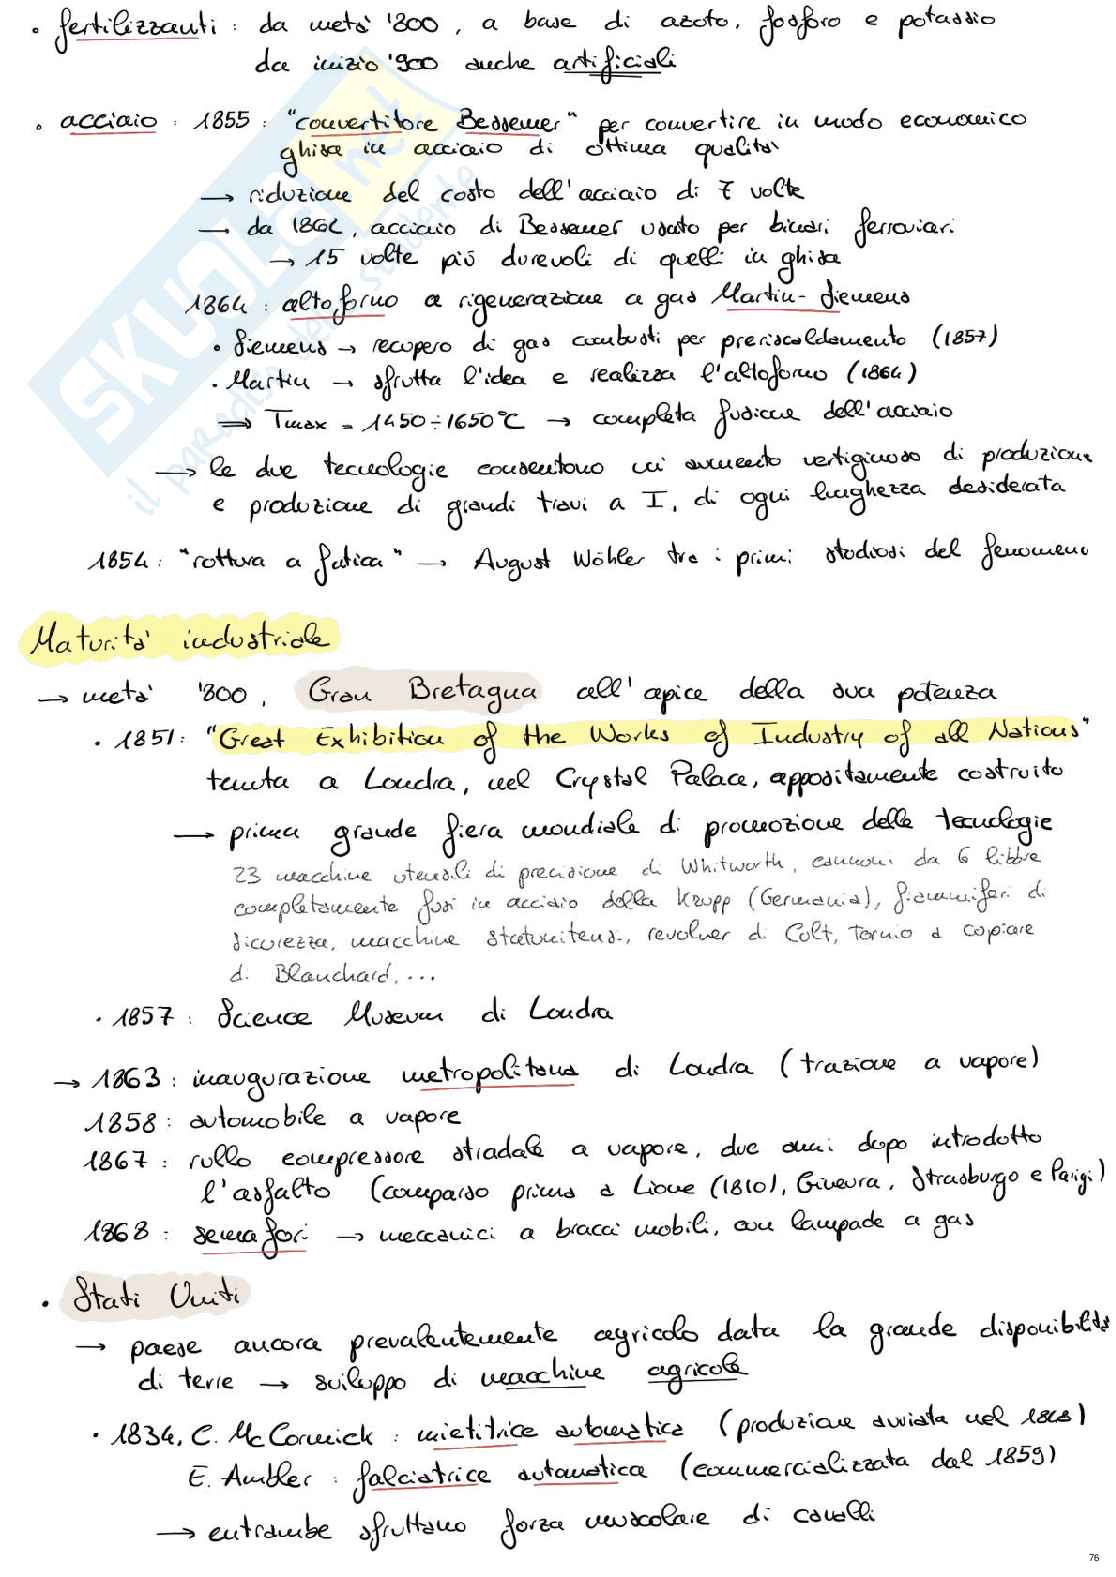 • fertilizzanti : da metà '800, a base di azoto, fosforo e potassio
da inizio '900 anche artificiali
• acciaio : 1855 : "convertitore Bessemer" per convertire in modo economico
ghisa in acciaio di ottima qualità
→ riduzione del costo dell'acciaio di 7 volte
→ da 1862, acciaio di Bessemer usato per binari ferroviari
→ 15 volte più durevoli di quelli in ghisa
1864 : altoforno a rigenerazione a gas Martin-Siemens
• Siemens → recupero di gas combusti per preriscaldamento (1857)
• Martin → sfrutta l'idea e realizza l'altoforno (1864)
⇒ Tmax = 1450÷1650°C → completa fusione dell'acciaio
→ le due tecnologie consentono un aumento vertiginoso di produzione
e produzione di grandi travi a I, di ogni lunghezza desiderata
1854 : "rottura a fatica" → August Wöhler tra i primi studiosi del fenomeno
Maturità industriale
→ metà '800, Gran Bretagna all'apice della sua potenza
• 1851: "Great Exhibition of the Works of Industry of all Nations"
tenuta a Londra, nel Crystal Palace, appositamente costruito
→ prima grande fiera mondiale di promozione delle tecnologie
23 macchine utensili di precisione di Whitworth, cannoni da 6 libbre
completamente fusi in acciaio della Krupp (Germania), fiammiferi di
sicurezza, macchine statunitensi, revolver di Colt, tornio a copiare
di Blanchard, ...
• 1857 : Science Museum di Londra
→ 1863 : inaugurazione metropolitana di Londra (trazione a vapore)
1858 : automobile a vapore
1867 : rullo compressore stradale a vapore, due anni dopo introdotto
l'asfalto (comparso prima a Lione (1810), Ginevra, Strasburgo e Parigi)
1868 : semafori → meccanici a bracci mobili, con lampade a gas
• Stati Uniti
→ paese ancora prevalentemente agricolo data la grande disponibilità
di terre → sviluppo di macchine agricole
• 1834, C. McCormick : mietitrice automatica (produzione avviata nel 1848)
E. Ambler : falciatrice automatica (commercializzata dal 1859)
→ entrambe sfruttano forza muscolare di cavalli
76
SKUOLA.net
il paradiso dello studente